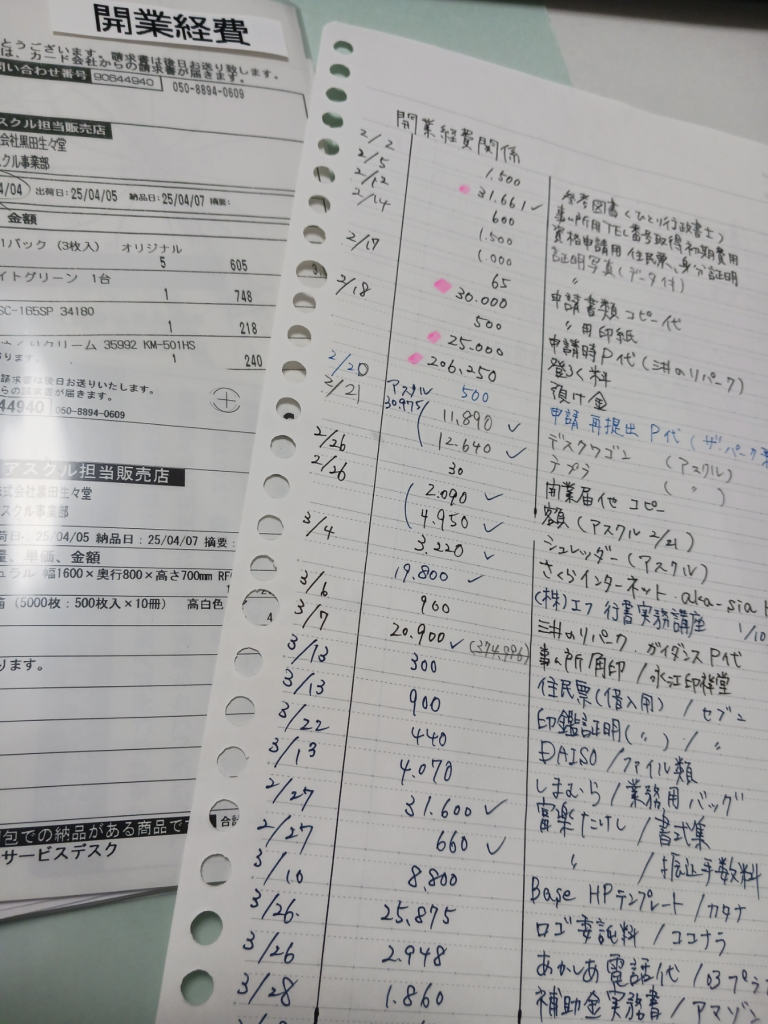 開業経費
とうございます。請求書は後日お送り致します。
は、カード会社からの請求書が届きます。
問い合わせ番号 90644940 050-8894-0609
アスクル担当販売店
会社黒田生々堂
スクル事業部
4/04 出荷日:25/04/05 納品日:25/04/07 摘要:
金額
1パック (3枚入) オリジナル
5 605
イトグリーン 1台
1 748
SC-165SP 34180
1 218
クリーム 35992 KM-501HS
1 240
請求書は後日お送りいたします。
44940 050-8894-0609
アスクル担当販売店
式会社黒田生々堂
スクル事業部
荷日:25/04/05 納品日:25/04/07 摘要:
量、単価、金額
ュラル 幅1600×奥行800×高さ700mm
箱 (5000枚:500枚入×10冊) 高白色
ます。
包での納品がある商品です
サービスデスク
合計
開業経費関係
2/2 1.500 参考図書(ひとり行政書士)
2/5 31.661 ✓ 事ム所用TEL番号取得初期費用
2/12 600 資格申請用 住民票、身分証明
2/14 1.500 証明写真(データ付)
1.000 〃
2/17 65 申請書類 コピー代
30.000 〃 用印紙
2/18 500 申請時P代(三井のリパーク)
25.000 登ろく料
206,250 預け金
2/20 500 申請 再提出 P代 (ザ・パーク
2/21 アスクル 30.975 11,890 ✓ デスクワゴン (アスクル)
12.640 ✓ テプラ (〃)
2/26 30 開業届他 コピー
2/26 2.090 ✓ 額 (アスクル 2/21)
4.950 ✓ シュレッダー (アスクル)
3/4 3.220 ✓ さくらインターネット aka-sia
19.800 ✓ (株)エフ 行書実務講座 1/10
3/6 900 三井のリパーク ガイダンスP代
3/7 20.900 ✓ (374,996) 事ム所角印 / 永江印祥堂
3/13 300 住民票(借入用) / セブン
3/13 900 印鑑証明(〃) / 〃
3/22 440 DAISO / ファイル類
3/13 4.070 しまむら / 業務用バッグ
2/27 31.600 ✓ 富楽たけし / 書式集
2/27 660 ✓ 〃 / 振込手数料
3/10 8,800 Base HPテンプレート / カタナ
3/26 25,875 ロゴ委託料 / ココナラ
3/26 2.948 あかしあ電話代 / 03プラ
3/28 1.860 補助金実務書 / アマゾン